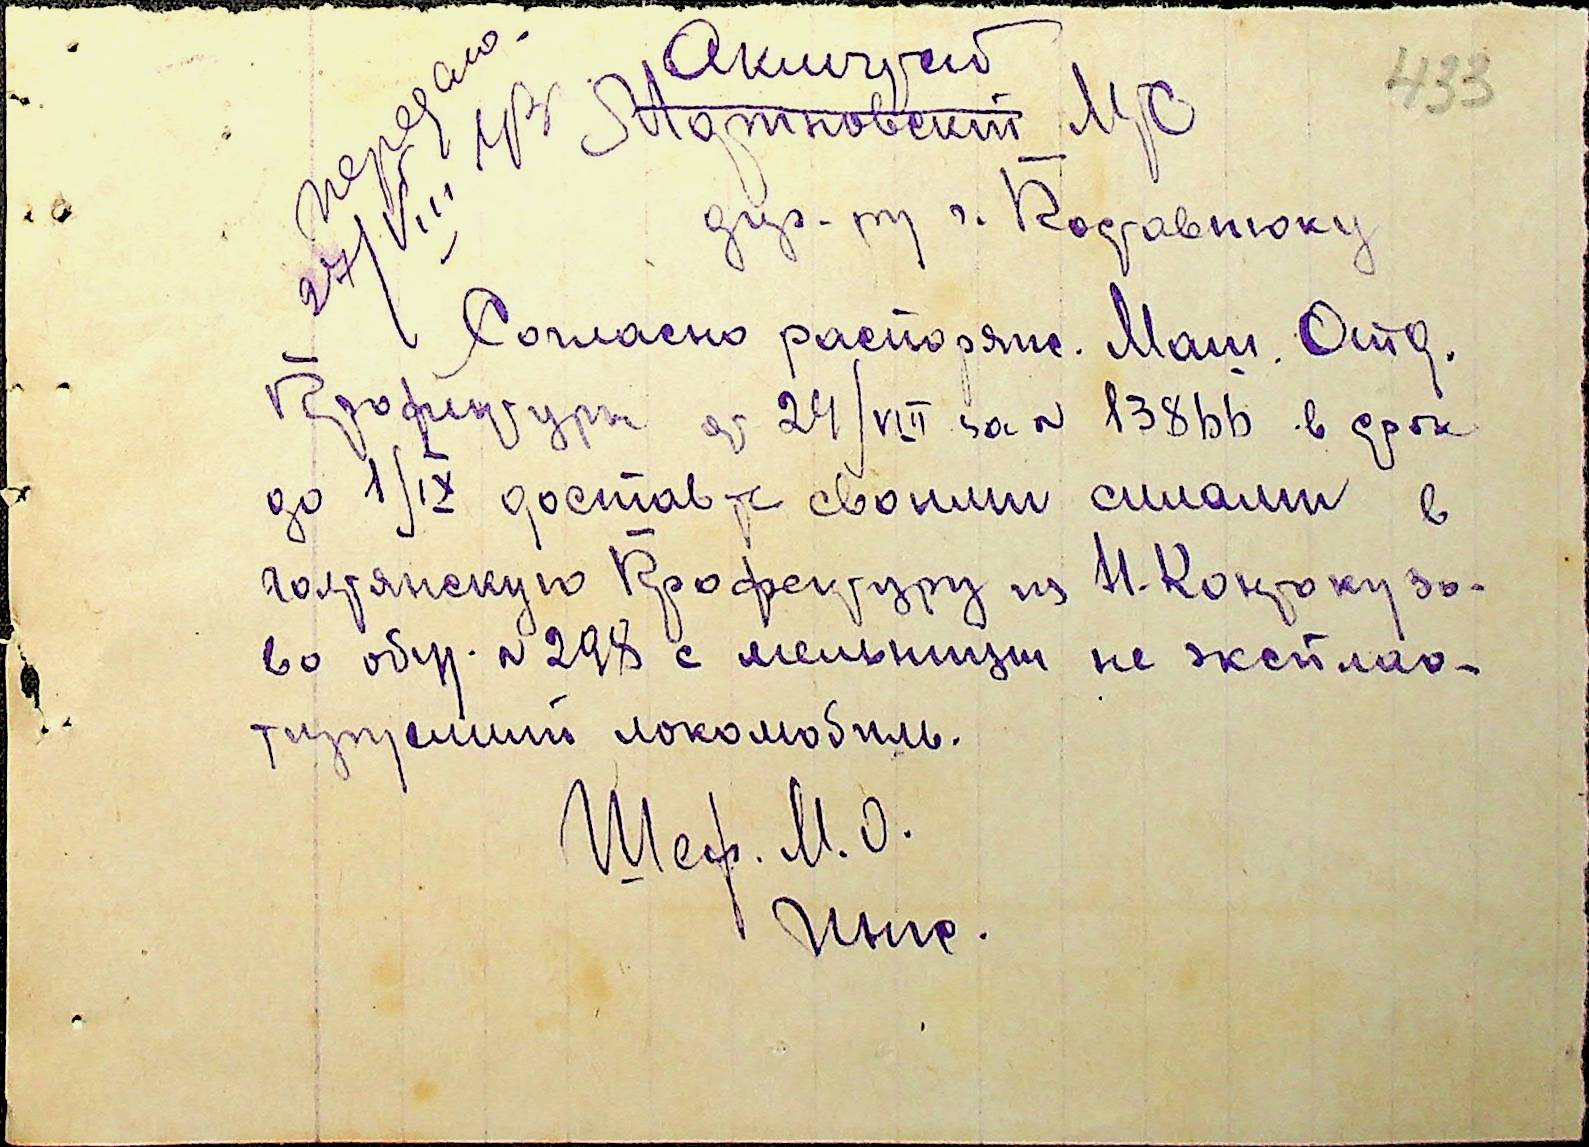 433
передано.
27/VIII
Акмечетск
Мартыновский МТС
дир-ру г. Коставнюку
Согласно распоряж. Маш. Отд.
Префектуры от 24/VIII за № 13866 в срок
до 1/IX доставьте своими силами в
голтянскую Префектуру из Н-Кантокузо-
во общ. № 298 с мельницы не эксплао-
тируемый локомобиль.
Шеф. М. О.
Инж.